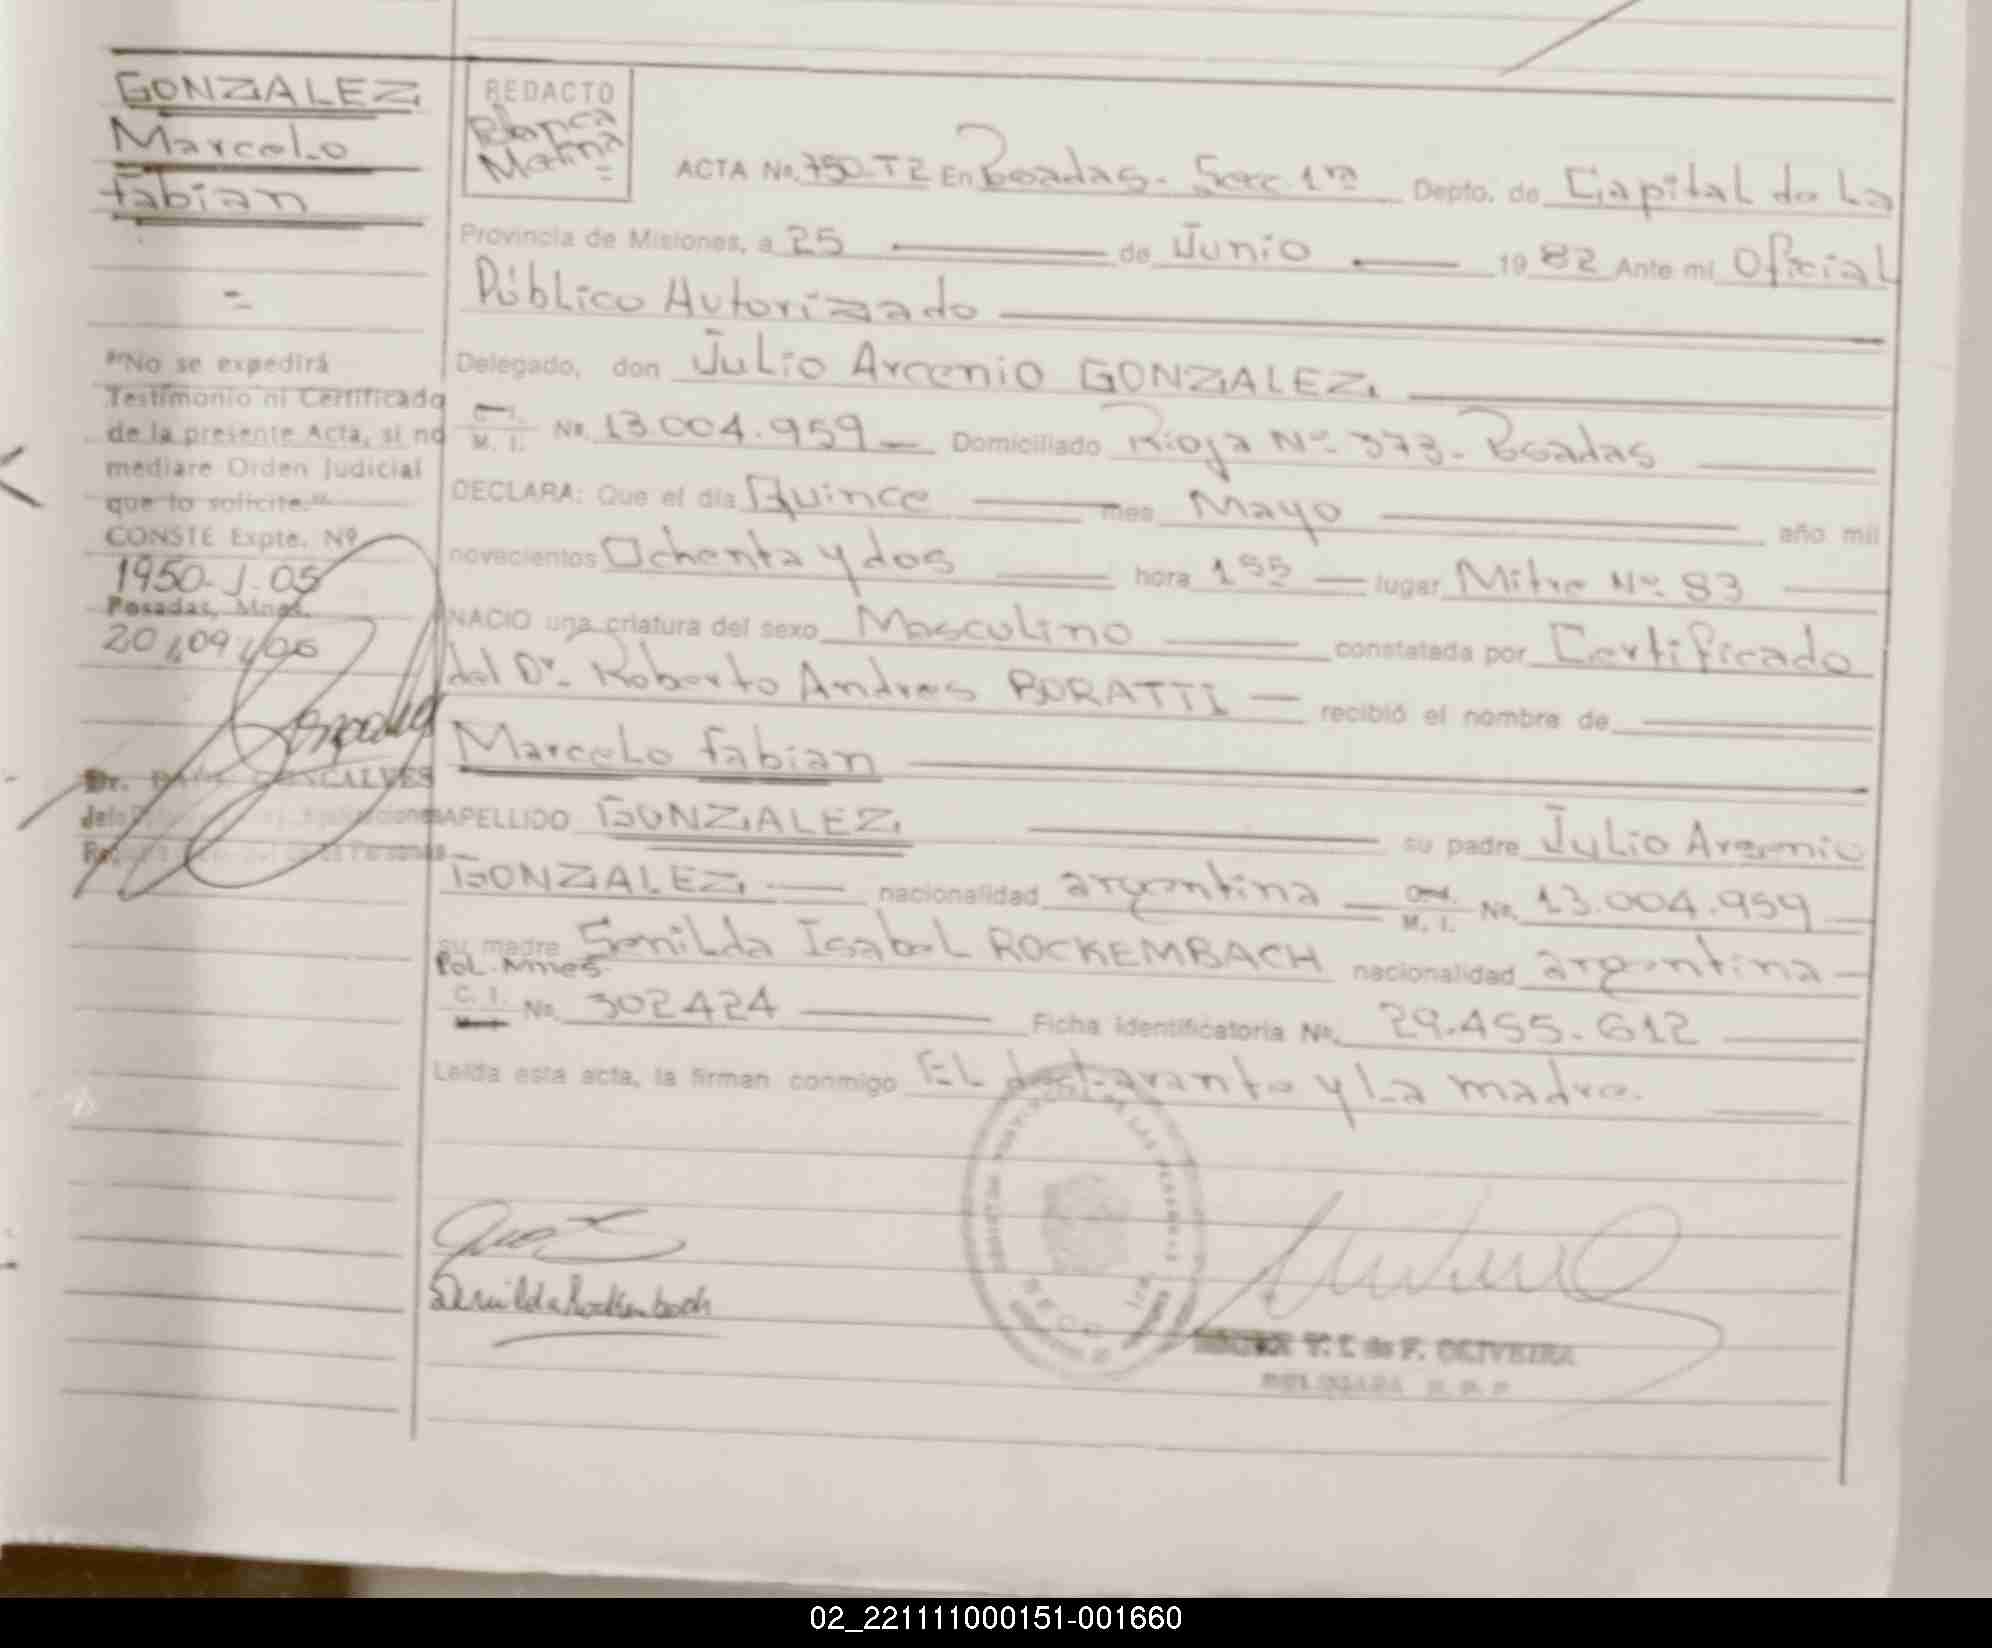 GONZALEZ
Marcelo
fabian
=
"No se expedirá
Testimonio ni Certificado
de la presente Acta, si no
mediare Orden Judicial
que lo solicite."
CONSTE Expte. Nº
1950-J-05
Posadas, Mnes.
20/09/05
Dr. GONCALVES
REDACTO
Blanca
Molina
=
ACTA No. 750-T2 En Posadas. Secc. 1ra Depto. de Capital de La
Provincia de Misiones, a 25 de Junio 1982 Ante mí Oficial
Público Autorizado
Delegado, don Julio Arcenio GONZALEZ.
C. I.
M. I. No. 13.004.959 Domiciliado Rioja Nº 373- Posadas
DECLARA: Que el día Quince mes Mayo año mil
novecientos Ochenta y dos hora 1 55 lugar Mitre Nº 83
NACIO una criatura del sexo Masculino constatada por Certificado
del Dr. Roberto Andres BORATTI recibió el nombre de
Marcelo fabian
APELLIDO GONZALEZ. su padre Julio Arcenio
GONZALEZ. nacionalidad argentina C. I.
M. I. No. 13.004.959
su madre Senilda Isabel ROCKEMBACH nacionalidad argentina
Pol. Mnes.
C. I.
M. I. No. 302424 Ficha identificatoria No. 29.455.612
Leída esta acta, la firman conmigo El declarante y La madre.
Senilda Rockembach
T. I. de F. OLIVEIRA
DELEGADA R. P. P.
02_221111000151-001660